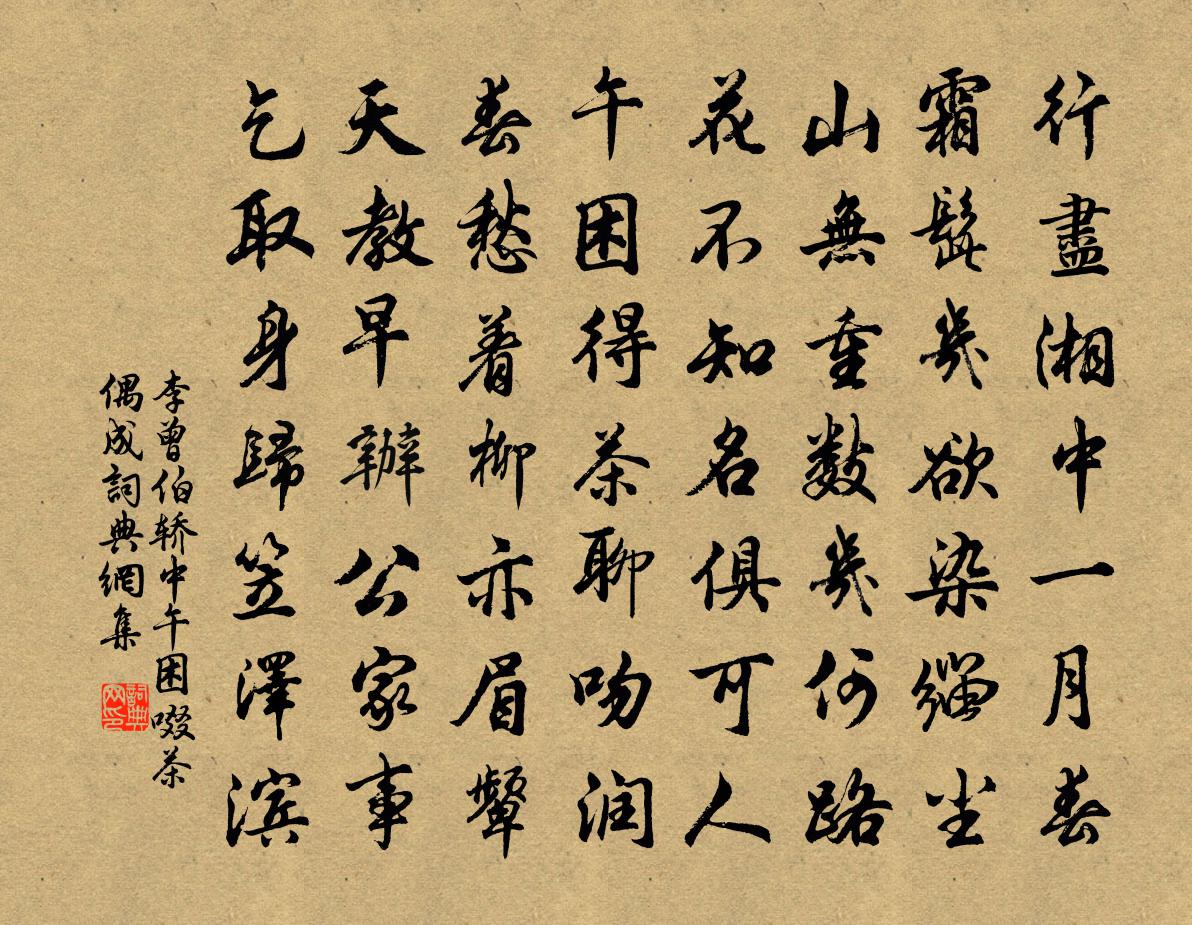 行盡湘中一月春
霜髭幾欲染緇尘
山無重數幾何路
花不知名俱可人
午困得茶聊吻润
春愁着柳亦眉顰
天教早辦公家事
乞取身歸笠澤滨
李曾伯轿中午困啜茶
偶成詞典網集
詞典
网印